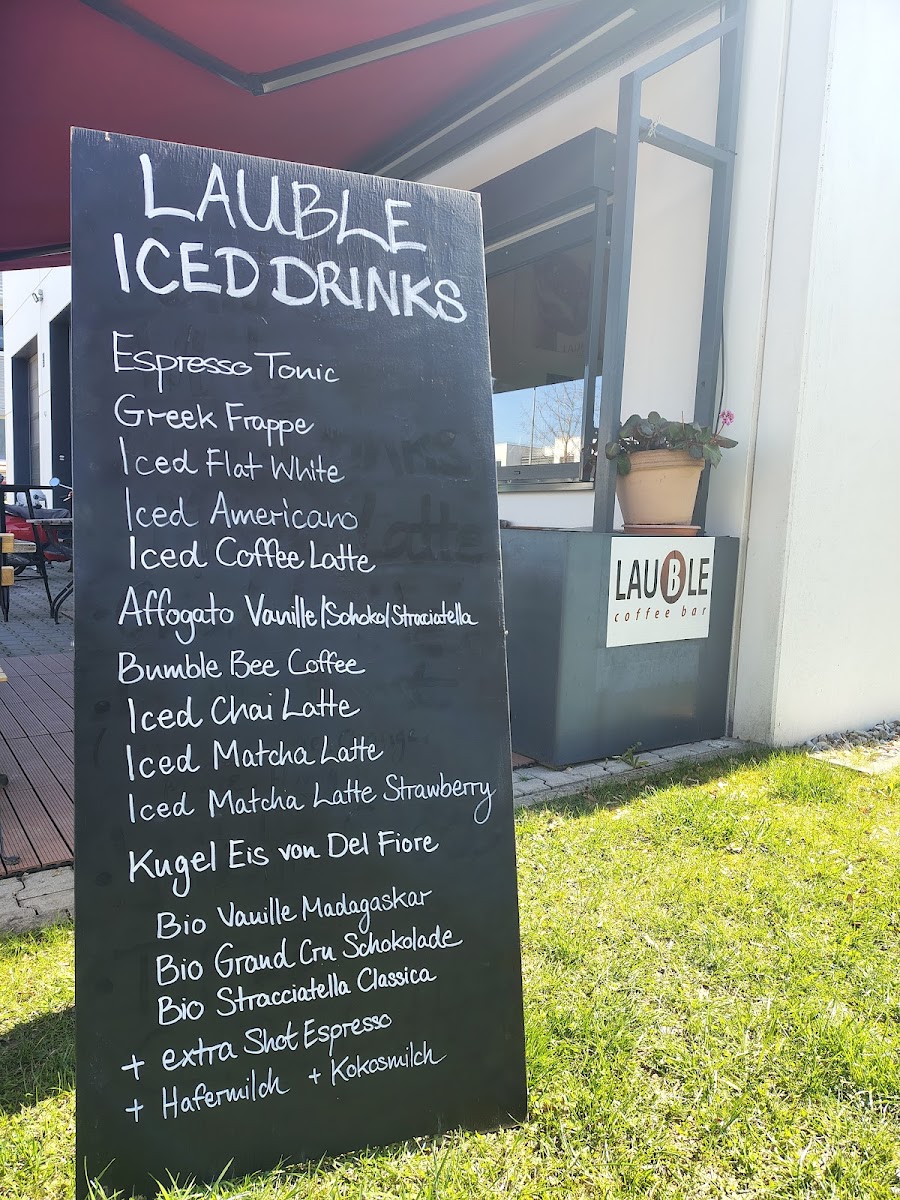 LAUBLE
ICED DRINKS
Espresso Tonic
Greek Frappe
Iced Flat White
Iced Americano
Iced Coffee Latte
Affogato Vanille/Schoko/Stracciatella
Bumble Bee Coffee
Iced Chai Latte
Iced Matcha Latte
Iced Matcha Latte Strawberry
Kugel Eis von Del Fiore
Bio Vanille Madagaskar
Bio Grand Cru Schokolade
Bio Stracciatella Classica
+ extra Shot Espresso
+ Hafermilch + Kokosmilch
LAUBLE
coffee bar